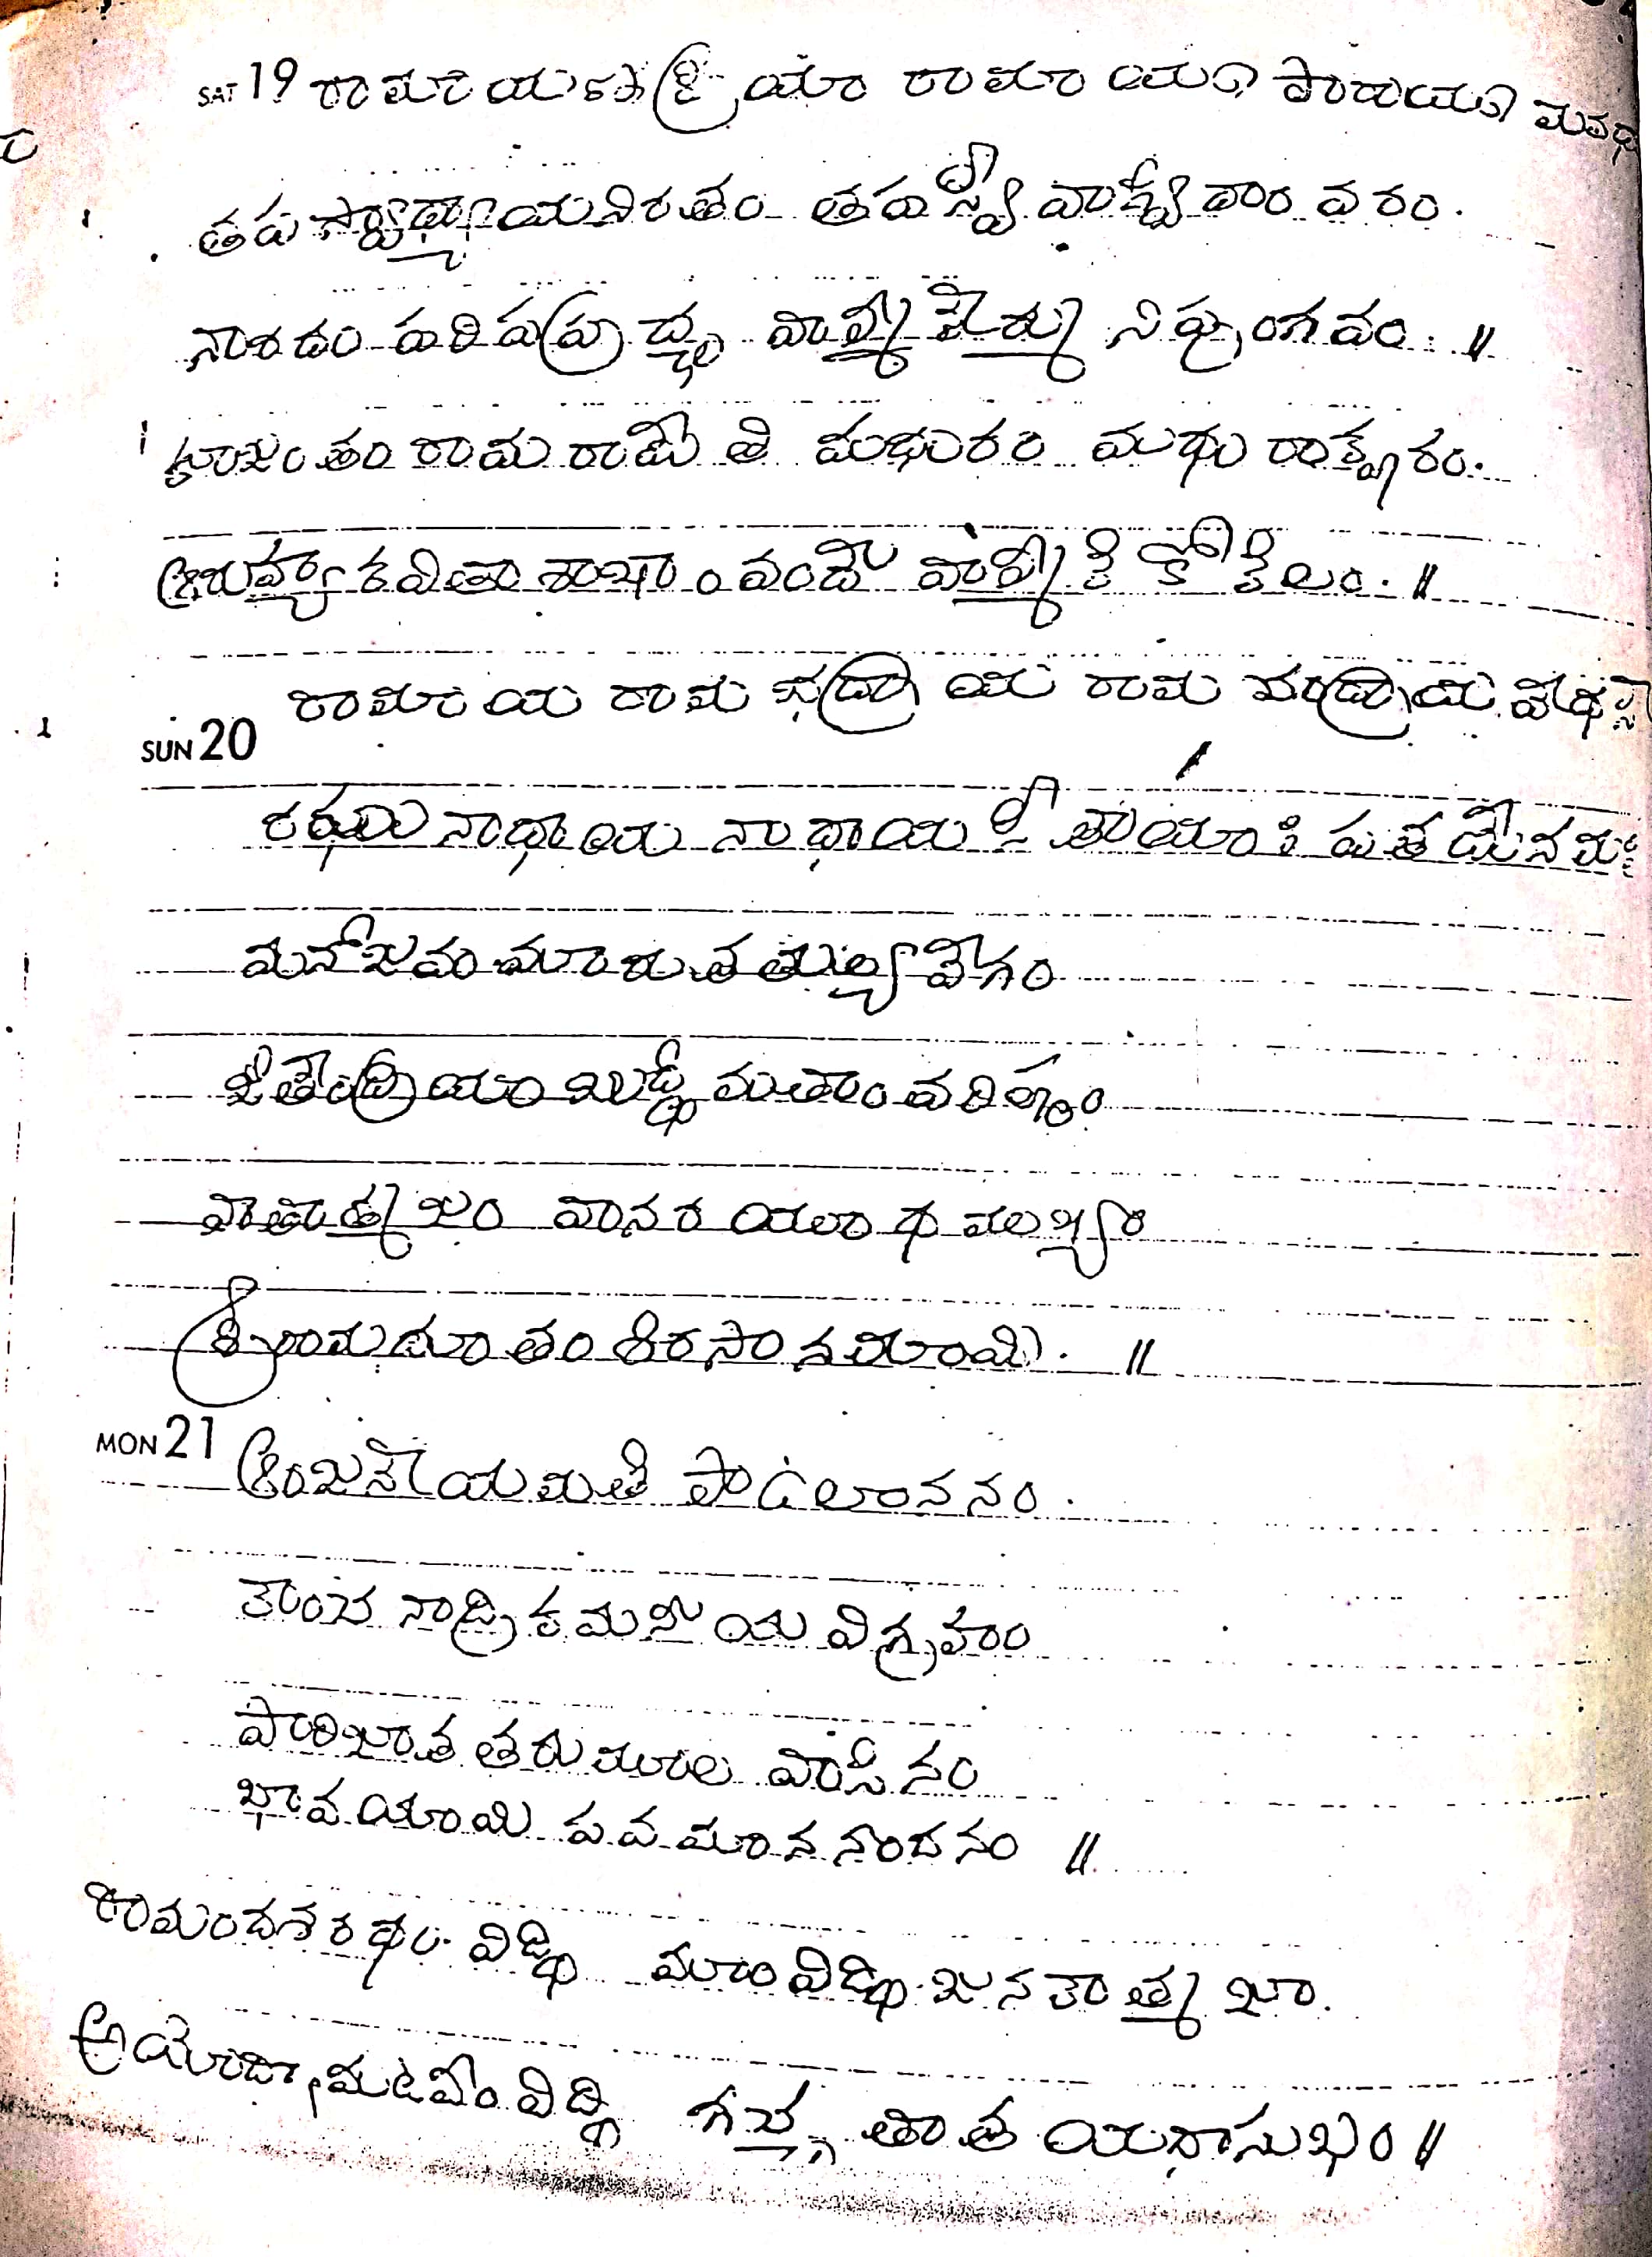 SAT 19 రామాయణక్రియా రామాయణ పారాయణ
తపస్స్వాధ్యాయనిరతం తపస్వీ వాగ్విదాం వరం.
నారదం పరిపప్రచ్ఛ వాల్మీకిర్ము నిపుంగవం. ॥
కూజం తం రామ రామే తి మధురం మధు రాక్షరం.
ఆరుహ్యా కవితా శాఖాం వందే వాల్మీకి కోకిలం. ॥
రామా య రామ భద్రా య రామ చంద్రాయ వేధసే
SUN 20
రఘు నాధాయ నాధాయ సీతాయాః పతయేనమః
మనోజవం మారుత తుల్య వేగం
జితేంద్రియం బుద్ధి మతాం వరిష్ఠం
వాతాత్మ జం వానర యూధ ముఖ్యం
శ్రీరామదూతం శిరసా నమామి. ॥
MON 21 ఆంజనేయ మతి పాటలాననం.
కాంచ నాద్రి కమనీ య విగ్రహం
పారిజాత తరు మూల వాసినం
భావ యామి పవ మాన నందనం ॥
రామందశరథం విద్ధి మాం విద్ధి జనకాత్మ జా.
అయోధ్యా మటవీం విద్ధి గచ్ఛ తాత యధాసుఖం ॥